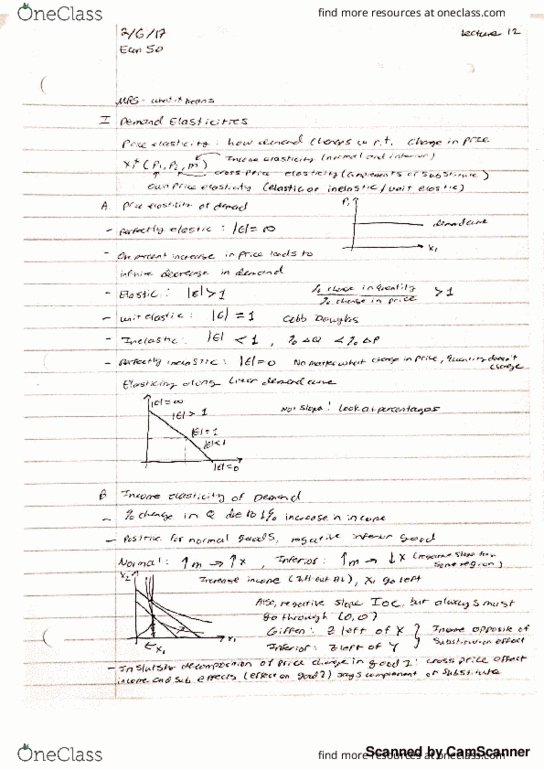 OneClass
find more resources at oneclass.com
2/6/17
Lecture 12
Econ 50
MRS - what it means
I Demand Elasticities
Price elasticity: how demand changes w.r.t. change in price
X₁* (P₁, P₂, m) Income elasticity (normal and inferior)
cross-price elasticity (complements or substitute)
own price elasticity (elastic or inelastic / unit elastic)
A. Price elasticity of demand
P₁
demand curve
X₁
- Perfectly elastic: |ε| = ∞
- One percent increase in price leads to
infinite decrease in demand
- Elastic: |ε| > 1
% change in quantity / % change in price > 1
- unit elastic: |ε| = 1 Cobb Douglas
- Inelastic: |ε| < 1, % ΔQ < % ΔP
- perfectly inelastic: |ε| = 0 No matter what change in price, quantity doesn't
change
Elasticity along linear demand curve
|ε| = ∞
|ε| > 1
Not slope! Look at percentages
|ε| = 1
|ε| < 1
|ε| = 0
B Income elasticity of Demand
- % change in Q due to 1% increase in income
- Positive for normal goods, negative inferior good
Normal: ↑m → ↑x, Inferior: ↑m → ↓x (negative slope
some region)
X₂
Increase income (shift out BL), X₁ go left
Also, negative slope IOC, but always must
go through (0,0)
Giffen: Z left of X
Inferior: Z left of Y
Income opposite of
substitution effect
X₁
X₁
- In Slutsky decomposition of price change in good 1: cross price effect
income and sub. effects (effect on good 2) says complement or substitute
Scanned by CamScanner
OneClass
find more resources at oneclass.com